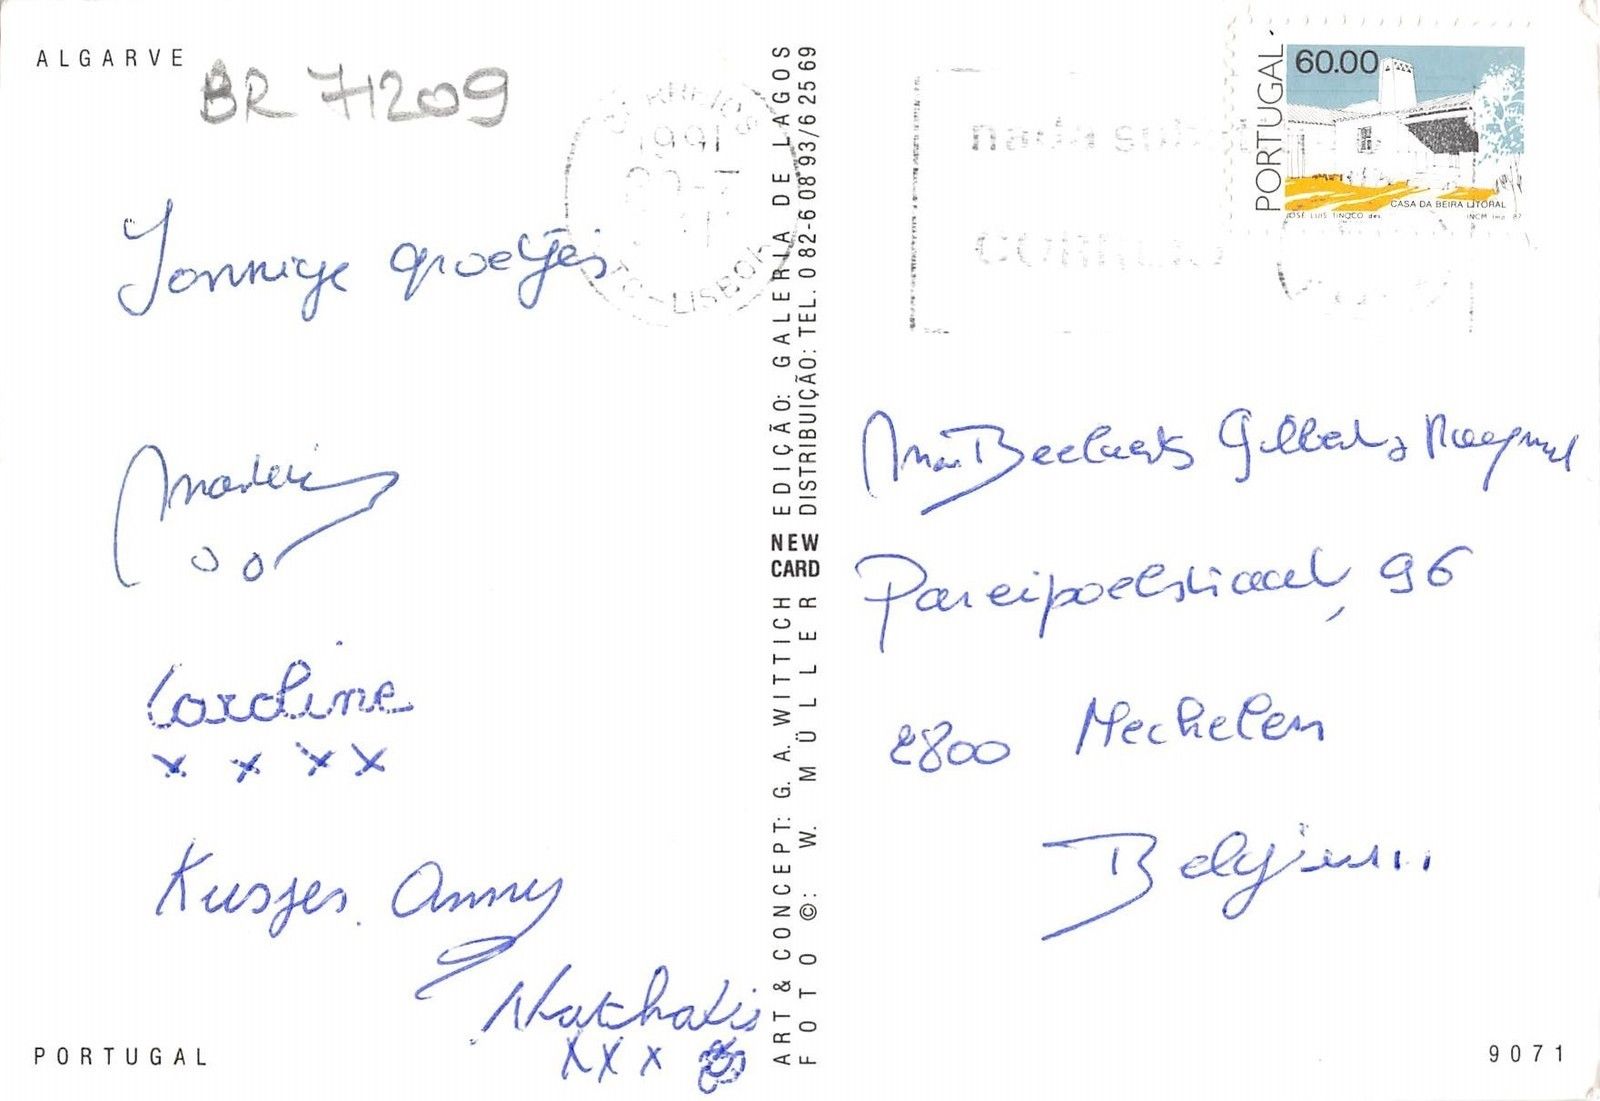 ALGARVE
BR 71209
CORREIOS
1991
LISBOA
Zonnige groetjes
Caroline
x x x x
Kusjes Anny
x x x
PORTUGAL
EDIÇÃO: GALERIA DE LAGOS
DISTRIBUIÇÃO: TEL. 0 82-6 08 93/6 25 69
NEW
CARD
ART & CONCEPT: G. A. WITTICH
FOTO ©: W. MÜLLER
nada
CORREIO
PORTUGAL
60.00
CASA DA BEIRA LITORAL
JOSÉ LUIS TINOCO des.
INCM Imp. 87
Beelaerts Gilbert
96
2800 Mechelen
Belgium
9071